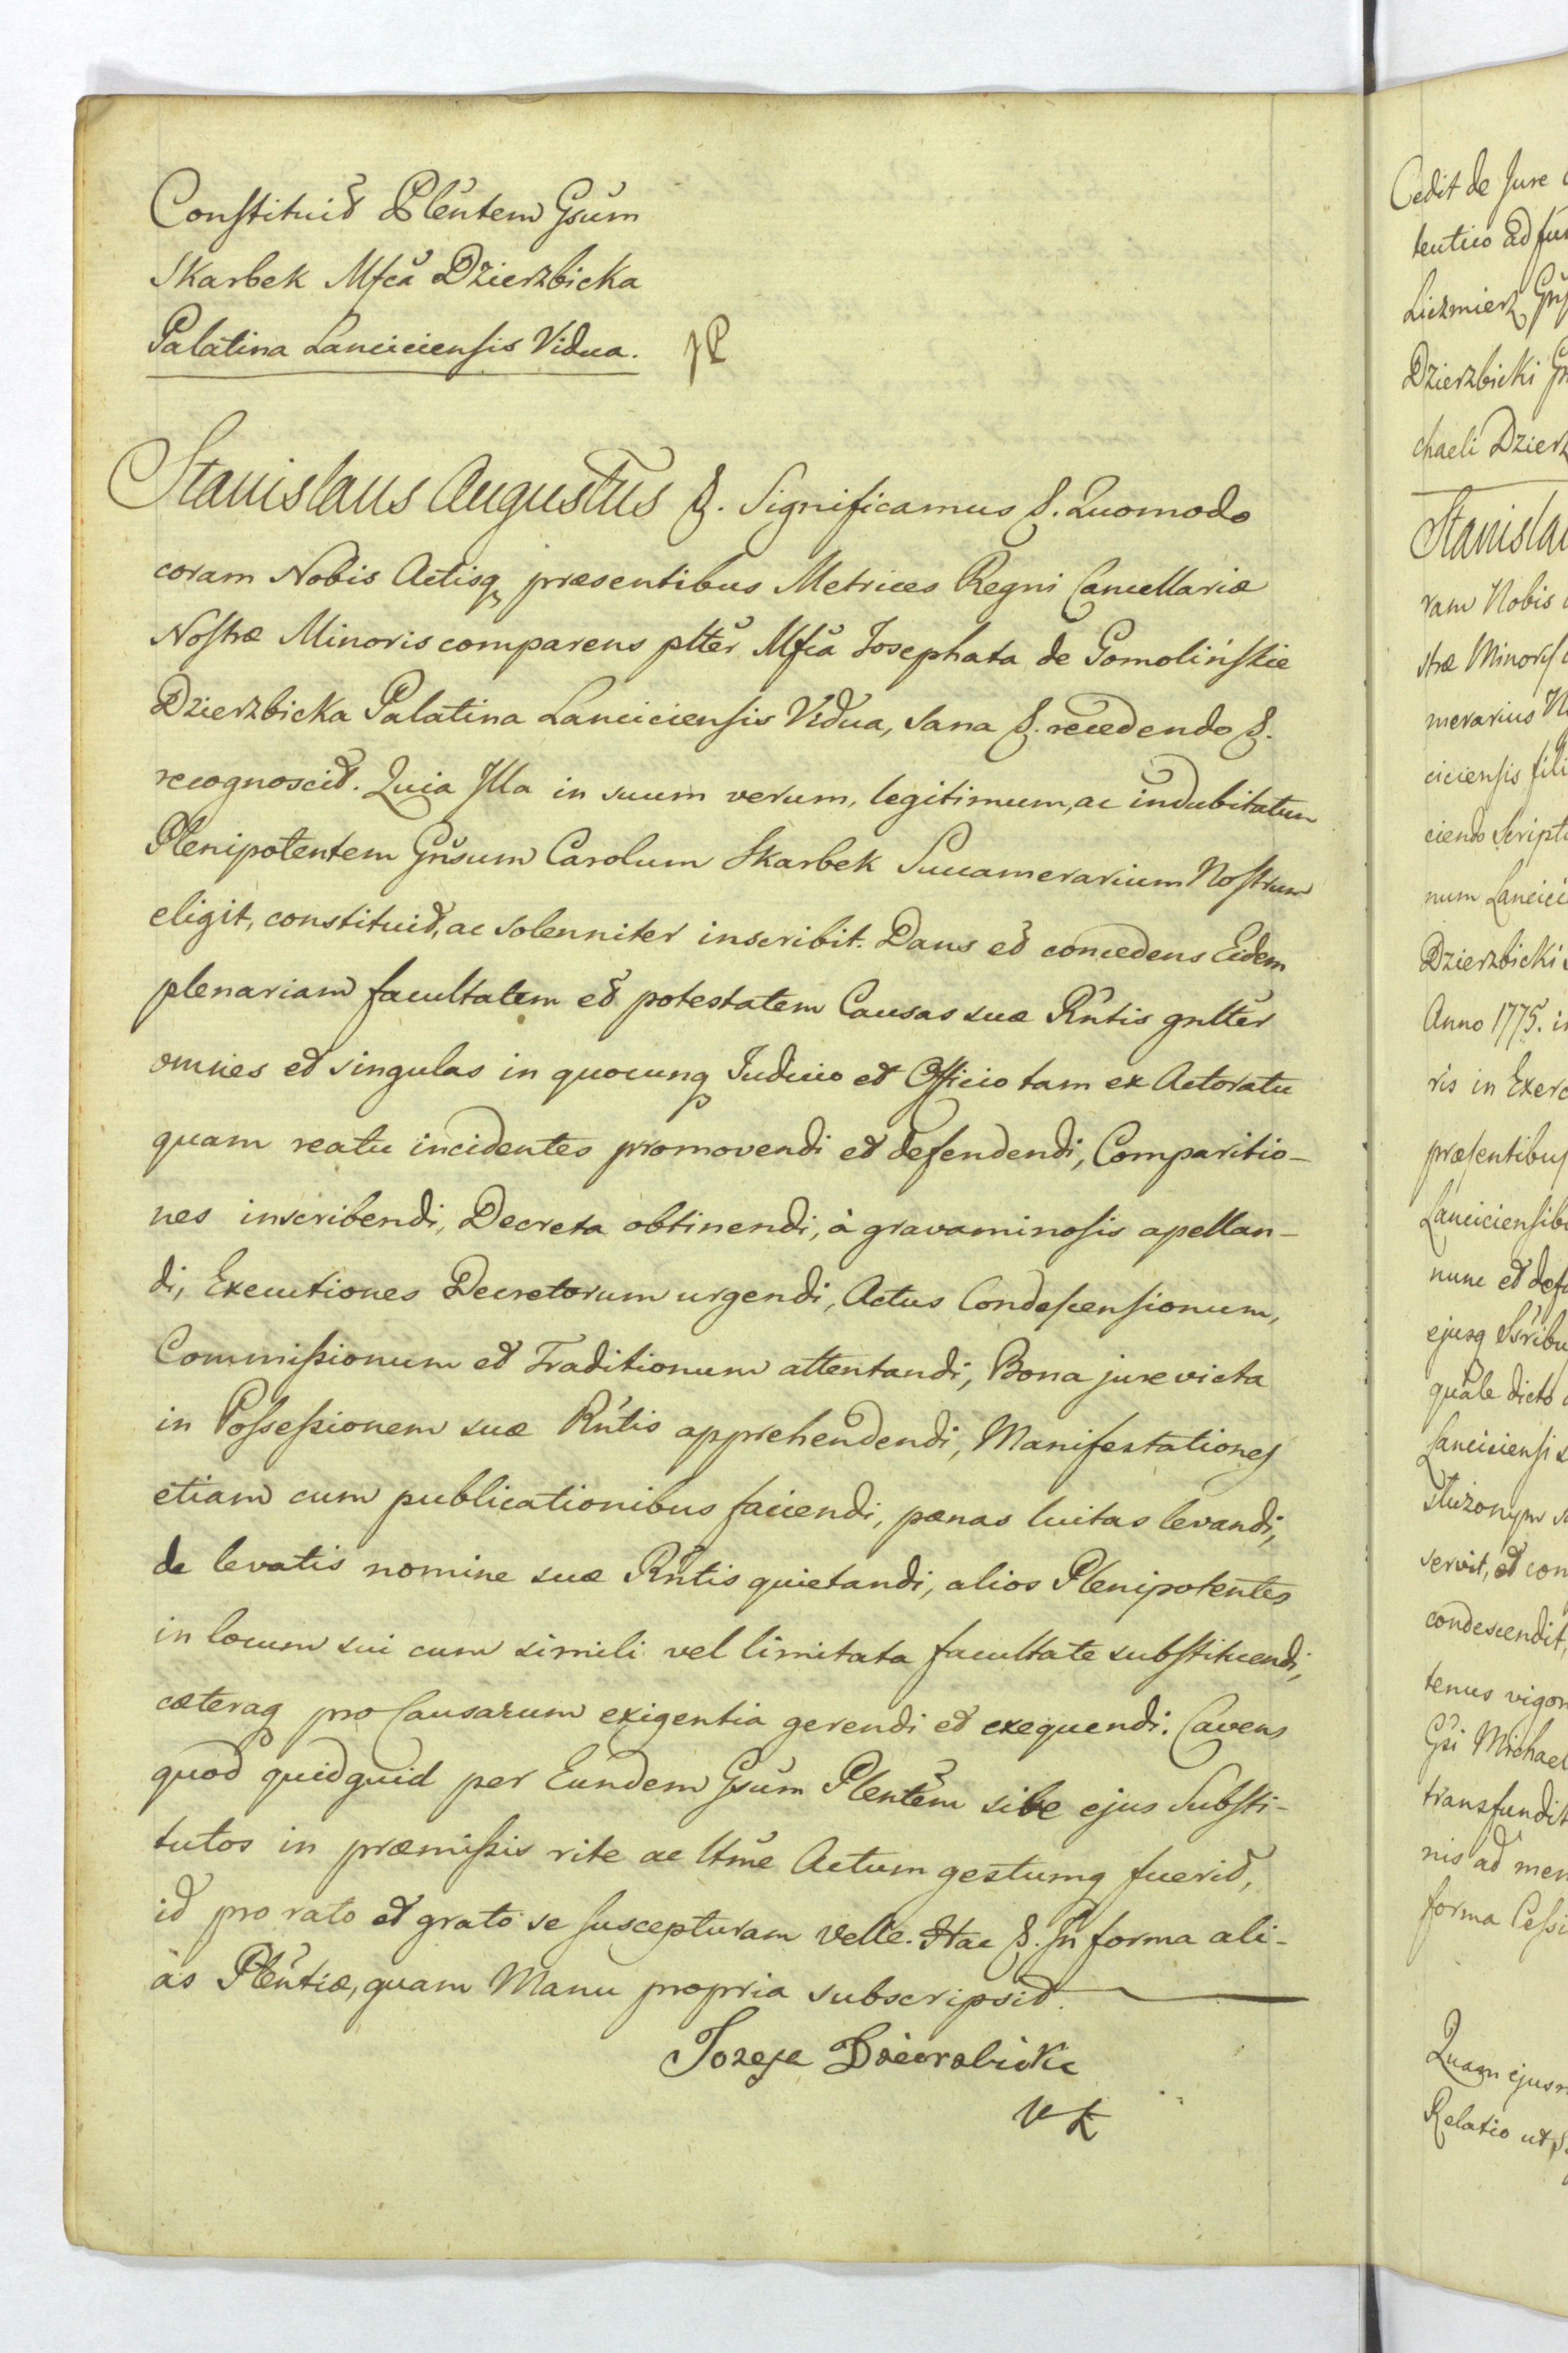 Constituit Plentem Gsum
Skarbek Mfca Dzierzbicka
Palatina Lanciciensis Vidua.
JP
Stanislaus Augustus &. Significamus &. Quomodo
coram Nobis Actisq præsentibus Metrices Regni Cancellariæ
Nostræ Minoris comparens pltter Mfca Josephata de Gomolińskie
Dzierzbicka Palatina Lanciciensis Vidua, sana &. recedendo &.
recognoscit. Quia Illa in suum verum, legitimum, ac indubitatum
Plenipotentem Gnsum Carolum Skarbek Succamerarium Nostrum
eligit, constituit, ac solenniter inscribit. Dans et concedens Eidem
plenariam facultatem et potestatem Causas suæ Rntis gnltter
omnes et singulas in quocunq Judicio et Officio tam ex Actoratu
quam reatu incidentes promovendi et defendendi, Comparitio-
nes inscribendi, Decreta obtinendi, à gravaminosis apellan-
di, Executiones Decretorum urgendi, Actus Condescensionum,
Commissionum et Traditionum attentandi, Bona jure victa
in Possessionem suæ Rntis apprehendendi, Manifestationes
etiam cum publicationibus faciendi, pænas luitas levandi,
de levatis nomine suæ Rntis quietandi, alios Plenipotentes
in locum sui cum simili vel limitata facultate substituendi,
cæteraq pro Causarum exigentia gerendi et exequendi. Cavens
quod quidquid per Eundem Gsum Plentem sibe ejus Substi-
tutos in præmissis rite ac ltme Actum gestumq fuerit,
id pro rato et grato se suscepturam velle. Hac &. In forma ali-
às Plentiæ, quam Manu propria subscripsit.
Cedit de Jure
tentico ad fu
Liczmierz
Dzierzbicki
chaeli Dzierz
Stanisla
ram Nobis
stræ Minoris
merarius
ciciensis fili
ciendo Script
num Lancici
Dzierzbicki
Anno 1775. i
ris in Exerc
præsentibus
Lanciciensib
nunc et def
ejusq Ssribu
quale dicto
Lanciciensi
servit, et con
condescendit,
tenus vigor
Gsi Michael
transfundit
nis ad men
forma Cessi
Quam ejusm
Relatio ut